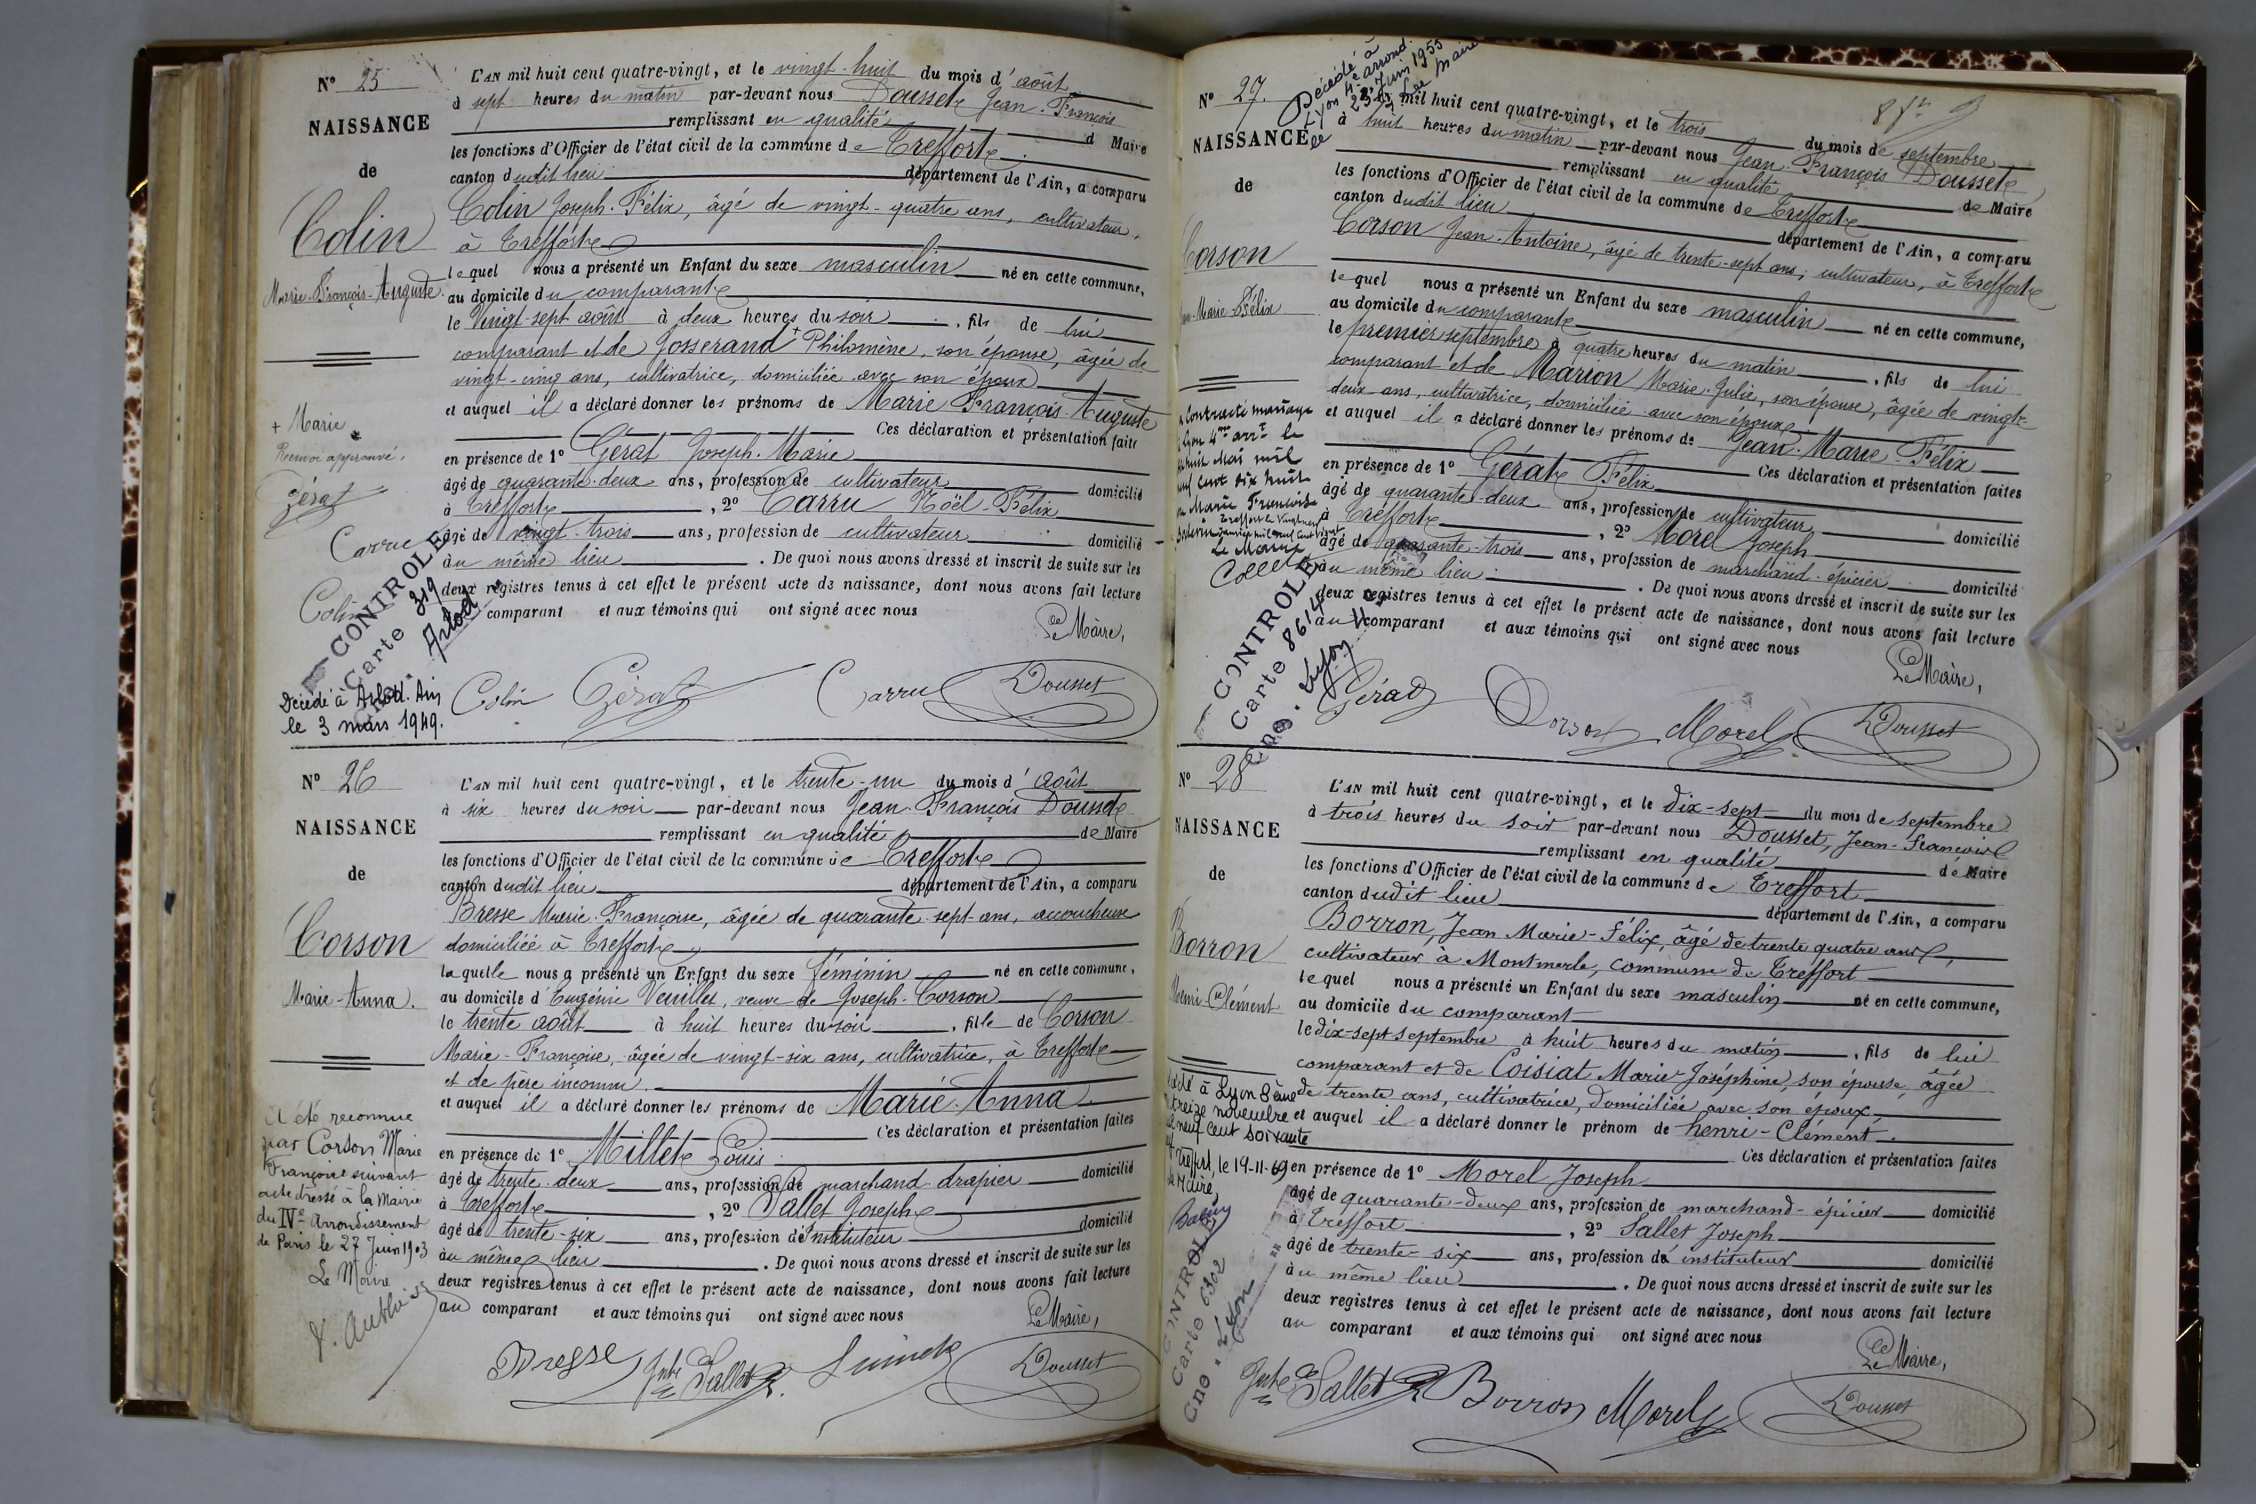 N° 25
NAISSANCE
de
Colin
Marie-François-Auguste.
+ Marie
Renvoi approuvé.
Gérat
Carru
Colin
CONTROLE
Carte 319
Arlod
Décédé à Arlod. Ain
le 3 mars 1949.
L'AN mil huit cent quatre-vingt, et le vingt-huit du mois d'août
à sept heures du matin par-devant nous Dousset Jean-François
remplissant en qualité de Maire
les fonctions d'Officier de l'état civil de la commune de Treffort
canton dudit lieu département de l'Ain, a comparu
Colin Joseph-Félix, âgé de vingt-quatre ans, cultivateur,
à Treffort
lequel nous a présenté un Enfant du sexe masculin né en cette commune,
au domicile du comparant
le Vingt-sept août à deux heures du soir, fils de lui
comparant et de Josserand + Philomène, son épouse, âgée de
vingt-cinq ans, cultivatrice, domiciliée avec son époux
et auquel il a déclaré donner les prénoms de Marie François-Auguste
Ces déclaration et présentation faite
en présence de 1° Gérat Joseph-Marie
âgé de quarante-deux ans, profession de cultivateur domicilié
à Treffort, 2° Carru Noël-Félix
âgé de vingt-trois ans, profession de cultivateur domicilié
au même lieu. De quoi nous avons dressé et inscrit de suite sur les
deux registres tenus à cet effet le présent acte de naissance, dont nous avons fait lecture
comparant et aux témoins qui ont signé avec nous
Le Maire,
Colin Gérat Carru Dousset
N° 26
NAISSANCE
de
Corson
Marie-Anna.
A été reconnue
par Corson Marie
Françoise suivant
acte dressé à la Mairie
du IVe Arrondissement
de Paris le 27 Juin 1903
Le Maire
L'AN mil huit cent quatre-vingt, et le trente-un du mois d'août
à six heures du soir par-devant nous Jean-François Dousset
remplissant en qualité de Maire
les fonctions d'Officier de l'état civil de la commune de Treffort
canton dudit lieu département de l'Ain, a comparu
Bresse Marie-Françoise, âgée de quarante-sept ans, accoucheuse
domiciliée à Treffort
laquelle nous a présenté un Enfant du sexe féminin né en cette commune,
au domicile d'Eugénie Veuillet, veuve de Joseph-Corson
le trente août à huit heures du soir, fille de Corson
Marie-Françoise, âgée de vingt-six ans, cultivatrice, à Treffort
et de père inconnu.
et auquel il a déclaré donner les prénoms de Marie-Anna
Ces déclaration et présentation faites
en présence de 1° Millet Louis
âgé de trente-deux ans, profession de marchand-drapier domicilié
à Treffort, 2° Sallet Joseph
âgé de trente-six ans, profession d'Instituteur domicilié
au même lieu. De quoi nous avons dressé et inscrit de suite sur les
deux registres tenus à cet effet le présent acte de naissance, dont nous avons fait lecture
au comparant et aux témoins qui ont signé avec nous
Le Maire,
Bresse Sallet Dousset
N° 27.
NAISSANCE
de
Corson
Marie-Félix
Décédé à
Lyon 4e arrond.
le 23 Juin 1955
Le Maire
Contracté mariage
Lyon 4me arrt le
huit Mai mil
neuf cent dix huit
Marie Françoise
Le Maire
Collet
CONTROLE
Carte 8614
Cne. Lyon
L'AN mil huit cent quatre-vingt, et le trois du mois de septembre
à huit heures du matin par-devant nous Jean-François Dousset
remplissant en qualité de Maire
les fonctions d'Officier de l'état civil de la commune de Treffort
canton dudit lieu département de l'Ain, a comparu
Corson Jean-Antoine, âgé de trente-sept ans, cultivateur, à Treffort
lequel nous a présenté un Enfant du sexe masculin né en cette commune,
au domicile du comparant
le premier septembre à quatre heures du matin, fils de lui
comparant et de Marion Marie-Julie, son épouse, âgée de vingt-
deux ans, cultivatrice, domiciliée avec son époux
et auquel il a déclaré donner les prénoms de Jean-Marie-Félix
Ces déclaration et présentation faites
en présence de 1° Gérat Félix
âgé de quarante-deux ans, profession de cultivateur domicilié
à Treffort, 2° Morel Joseph
âgé de quarante-trois ans, profession de marchand-épicier domicilié
au même lieu. De quoi nous avons dressé et inscrit de suite sur les
deux registres tenus à cet effet le présent acte de naissance, dont nous avons fait lecture
au comparant et aux témoins qui ont signé avec nous
Le Maire,
Gérat Corson Morel Dousset
N° 28
NAISSANCE
de
Borron
Clément
à Lyon 8ème
treize novembre
neuf cent soixante
Treffort, le 19-11-69
Maire,
CONTROLE
Carte 6302
Cne. Lyon
L'AN mil huit cent quatre-vingt, et le dix-sept du mois de septembre
à trois heures du soir par-devant nous Dousset, Jean-François
remplissant en qualité de Maire
les fonctions d'Officier de l'état civil de la commune de Treffort
canton dudit lieu département de l'Ain, a comparu
Borron, Jean Marie-Félix, âgé de trente quatre ans,
cultivateur à Montmerle, commune de Treffort
lequel nous a présenté un Enfant du sexe masculin né en cette commune,
au domicile du comparant
le dix-sept septembre à huit heures du matin, fils de lui
comparant et de Coisiat Marie-Joséphine, son épouse, âgée
de trente ans, cultivatrice, domiciliée avec son époux
et auquel il a déclaré donner le prénom de henri-Clément.
Ces déclaration et présentation faites
en présence de 1° Morel Joseph
âgé de quarante-deux ans, profession de marchand-épicier domicilié
à Treffort, 2° Sallet Joseph
âgé de trente-six ans, profession d'instituteur domicilié
au même lieu. De quoi nous avons dressé et inscrit de suite sur les
deux registres tenus à cet effet le présent acte de naissance, dont nous avons fait lecture
au comparant et aux témoins qui ont signé avec nous
Le Maire,
Sallet Borron Morel Dousset